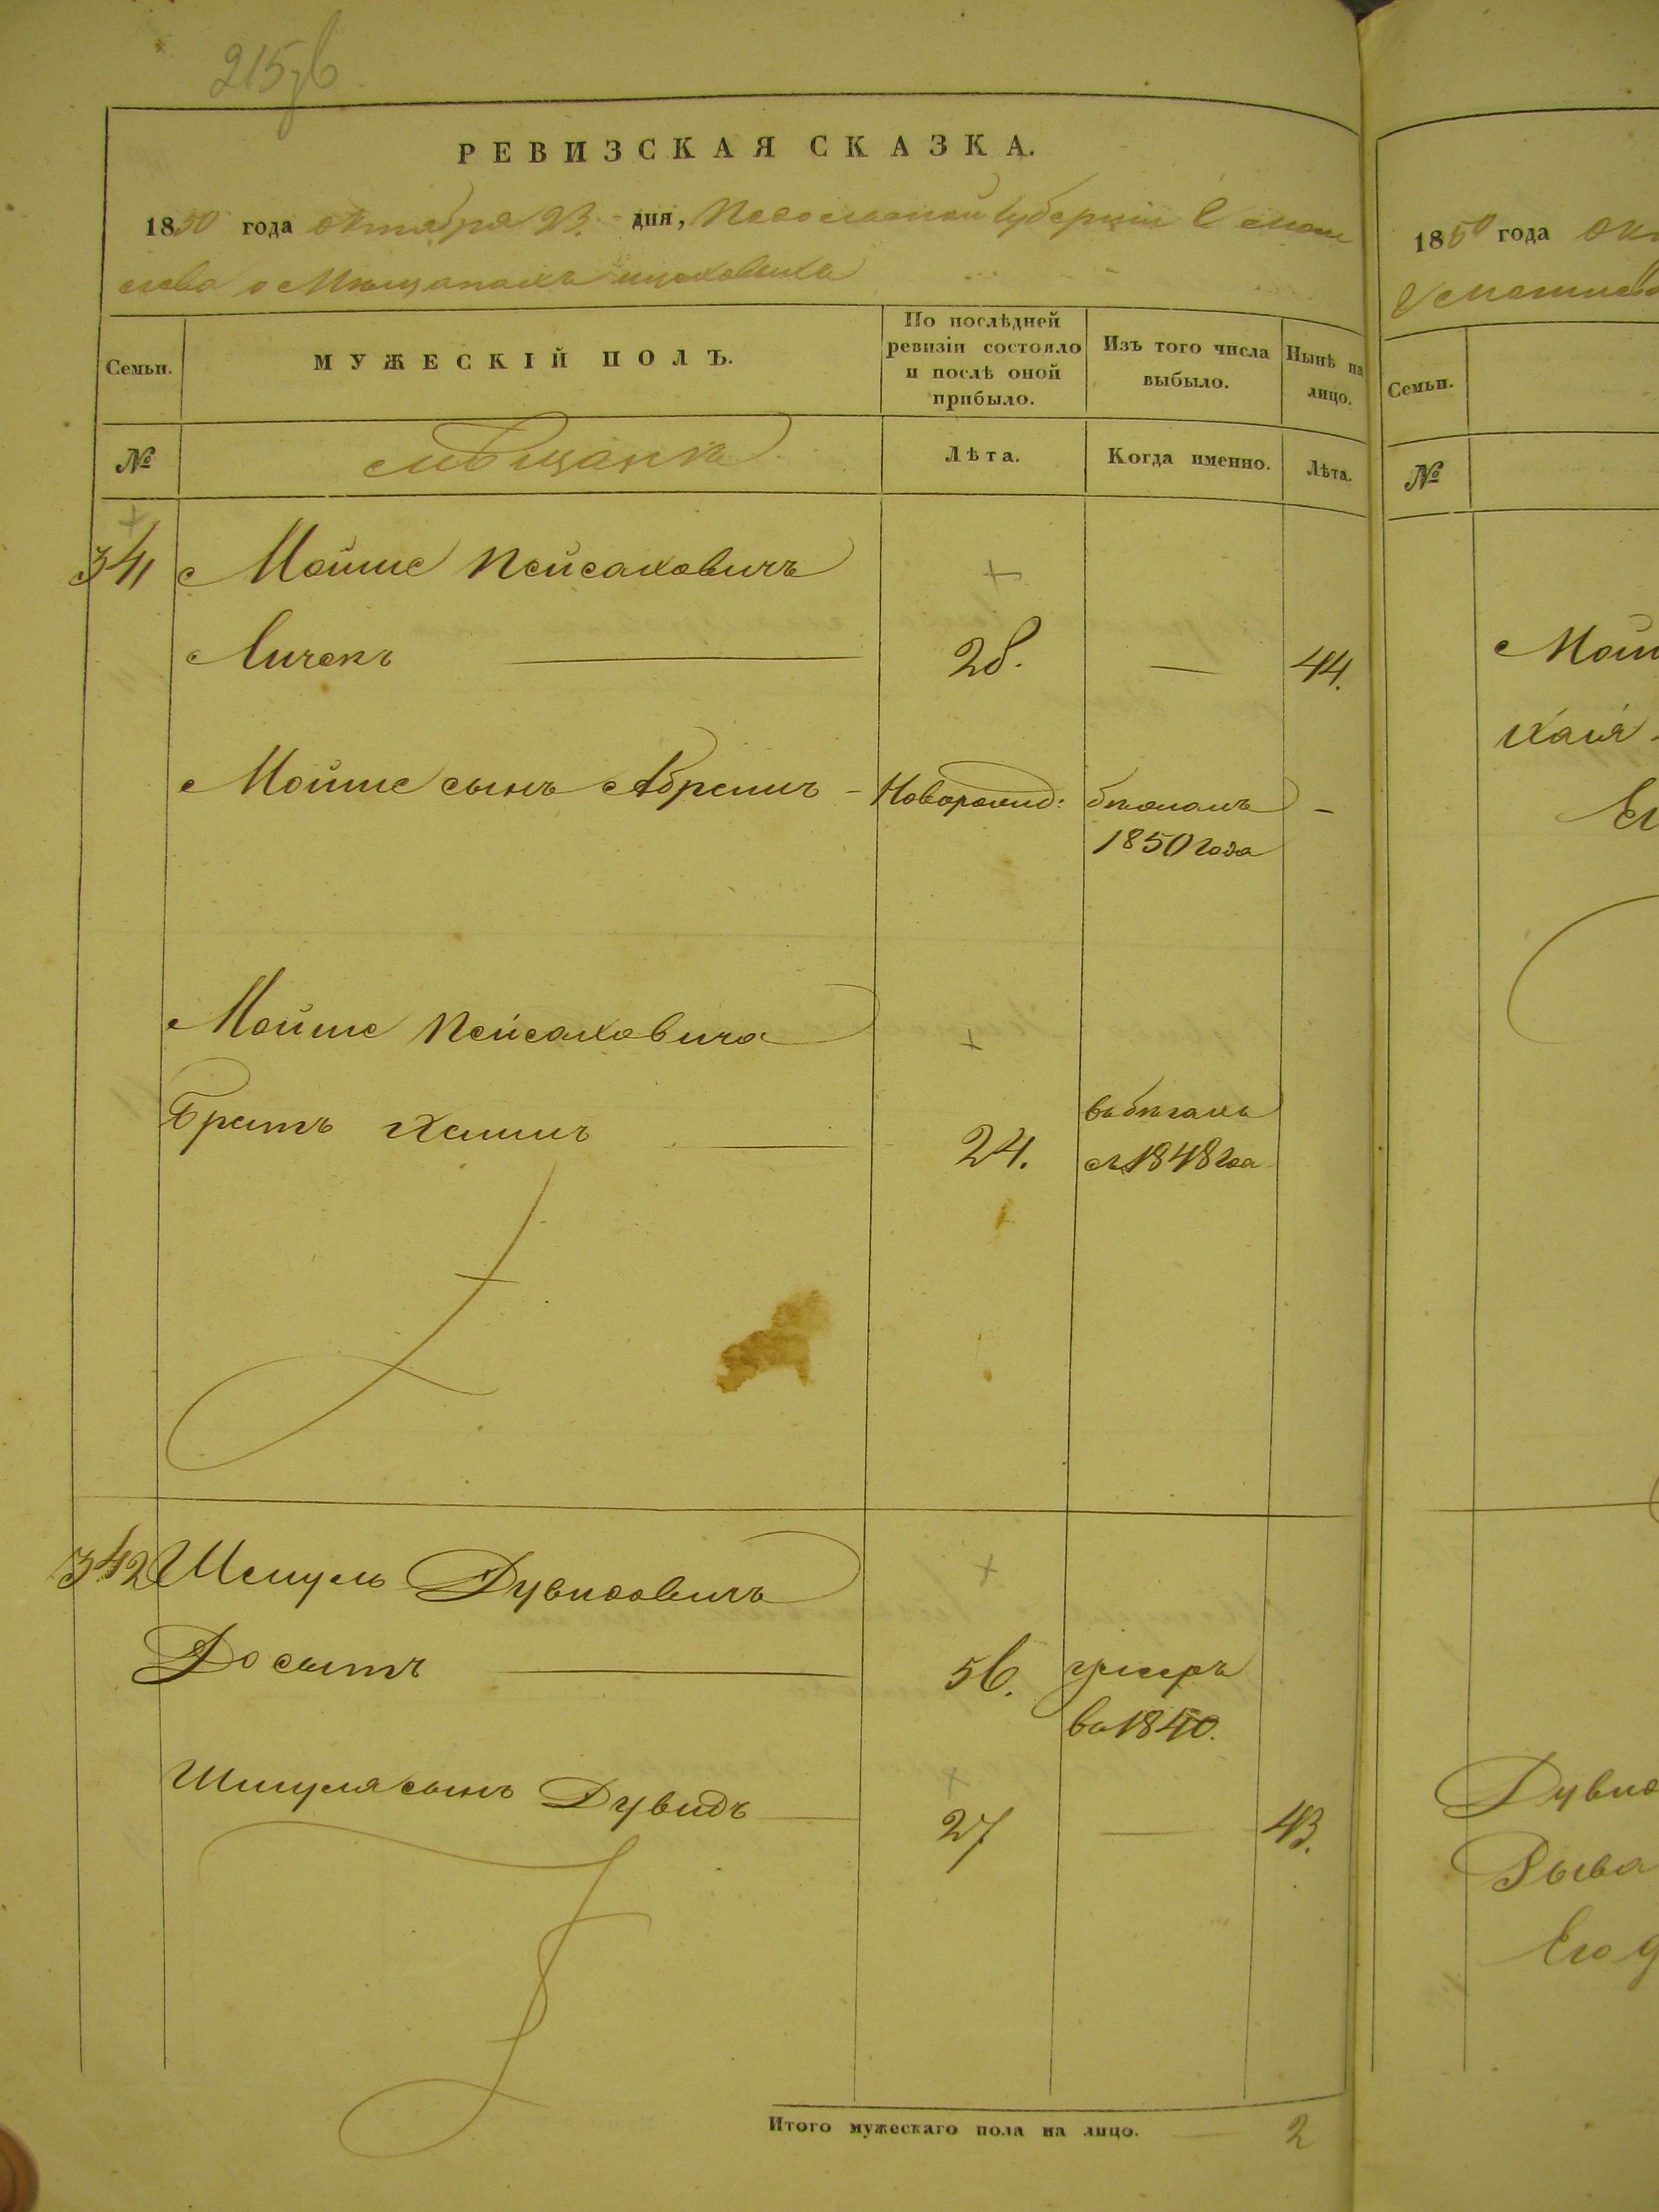 215об
РЕВИЗСКАЯ СКАЗКА.
1850 года октября 23 дня, Подольской Губерніи
о Мѣщанахъ
Семьи.
МУЖЕСКІЙ ПОЛЪ.
По послѣдней ревизіи состояло и послѣ оной прибыло.
Изъ того числа выбыло.
Нынѣ на лицо.
№
Мѣщане
Лѣта.
Когда именно.
Лѣта.
341 Мойше Пейсаховичъ
Личекъ 28. — 44.
Мойше сынъ Абрамъ – Новорожд: бѣжалъ –
1850 года
Мойше Пейсаховича
Братъ Хаимъ 24. въ бѣгахъ
съ 1848 года
342 Шмуль Дувидовичъ
Досытъ 56. умеръ
въ 1840.
Шмуля сынъ Дувидъ 27 — 43.
Итого мужескаго пола на лицо. 2
1850 года
Семьи.
№